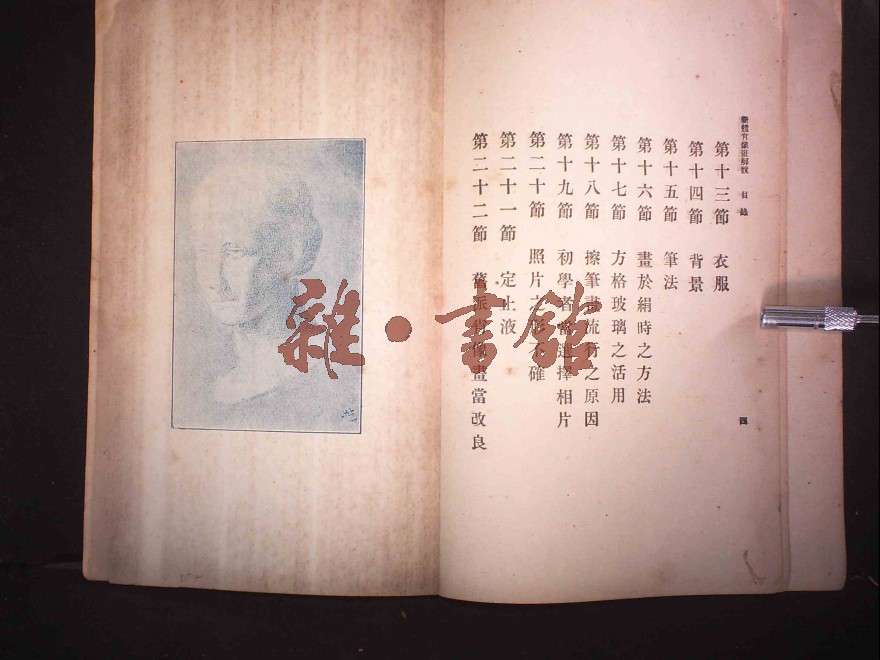 新體肖像畫解說　目錄
第十三節　衣服
第十四節　背景
第十五節　筆法
第十六節　畫於絹時之方法
第十七節　方格玻璃之活用
第十八節　擦筆畫流行之原因
第十九節　初學者當選擇相片
第二十節　照片之影不確
第二十一節　定止液
第二十二節　舊派肖像畫當改良
四
雜·書館